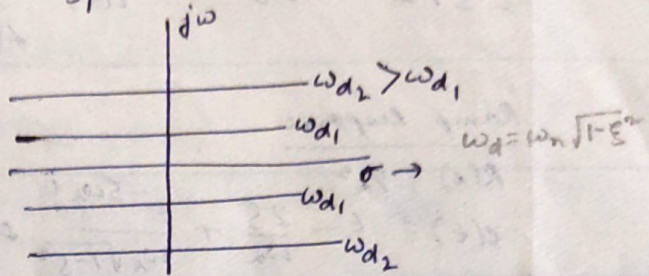 jω
ω_d2 > ω_d1
ω_d1
ω_d = ω_n √1-ξ²
σ →
ω_d1
ω_d2